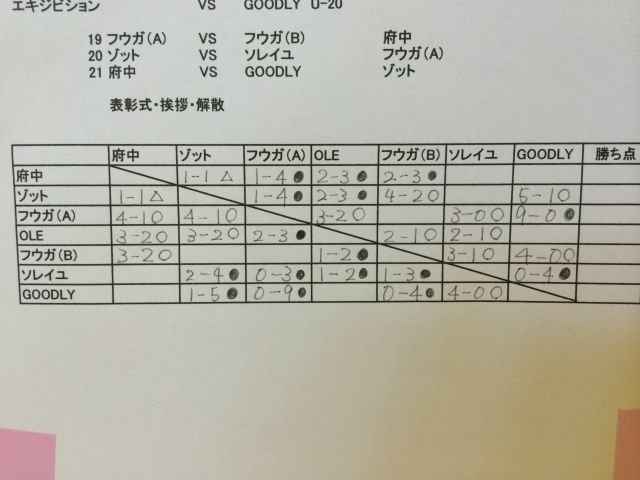 エキジビション VS GOODLY U-20
19 フウガ(A) VS フウガ(B) 府中
20 ゾット VS ソレイユ フウガ(A)
21 府中 VS GOODLY ゾット
表彰式・挨拶・解散
府中 ゾット フウガ(A) OLE フウガ(B) ソレイユ GOODLY 勝ち点
府中 1-1△ 1-4● 2-3● 2-3●
ゾット 1-1△ 1-4● 2-3● 4-2○ 5-1○
フウガ(A) 4-1○ 4-1○ 3-2○ 3-0○ 9-0●
OLE 3-2○ 3-2○ 2-3● 2-1○ 2-1○
フウガ(B) 3-2○ 1-2● 3-1○ 4-0○
ソレイユ 2-4● 0-3● 1-2● 1-3● 0-4●
GOODLY 1-5● 0-9● 0-4● 4-0○